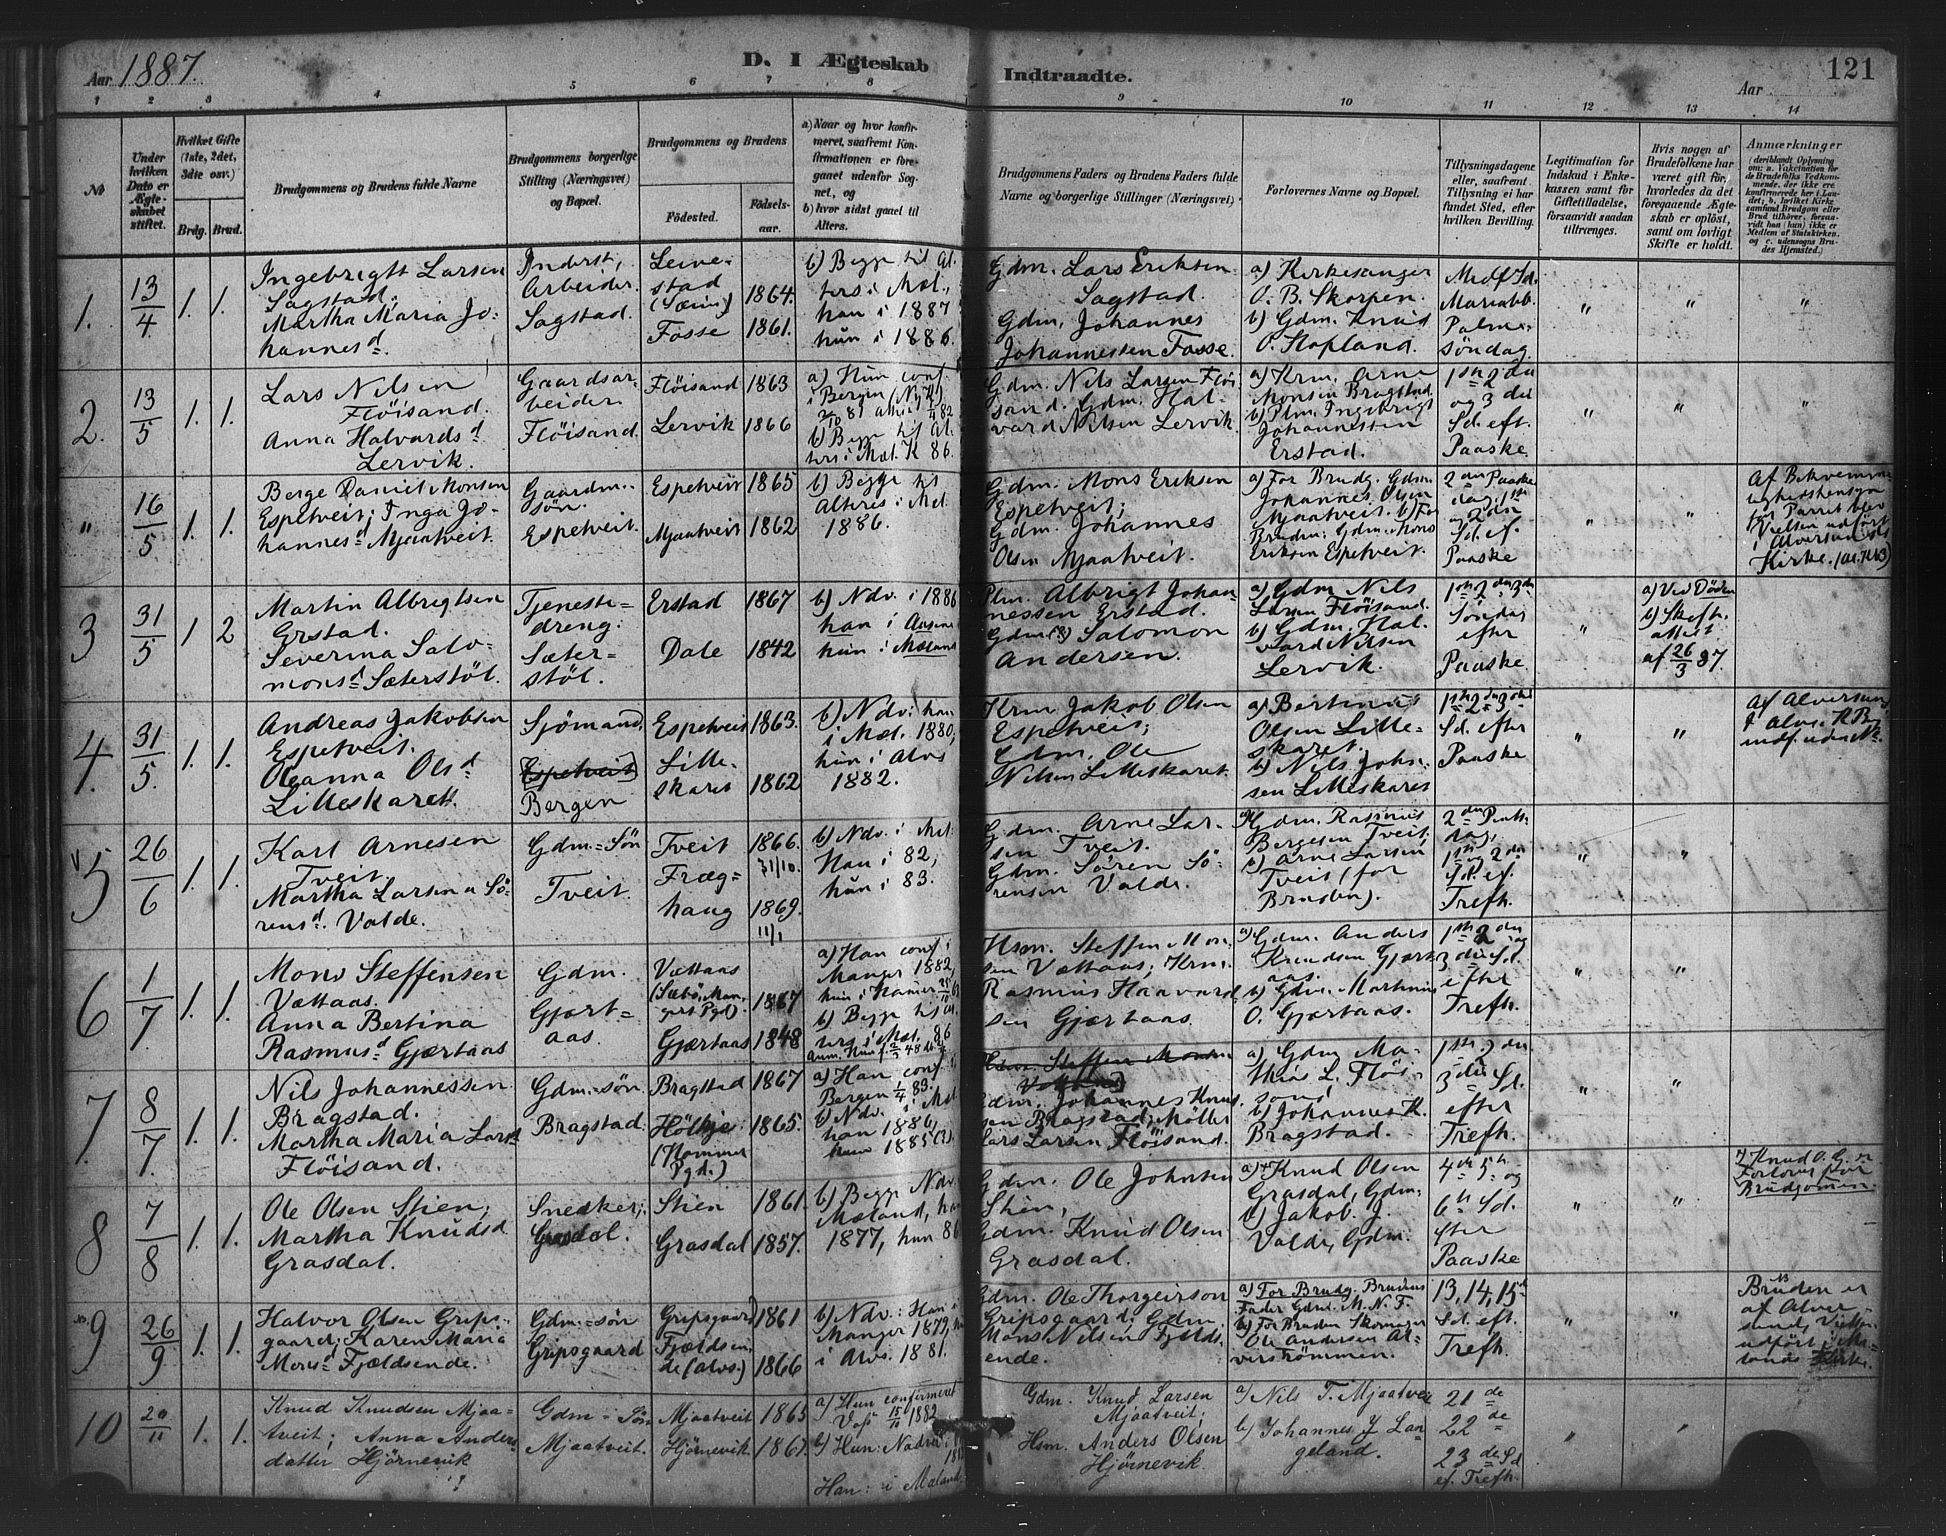 Aar 1887.
D. I Ægteskab
Indtraadte.
Aar
121
1 2 3 4 5 6 7 8 9 10 11 12 13 14
No
Under
hvilken
Dato er
Ægte-
skabet
stiftet.
Hvilket Gifte
(1ste, 2det,
3die osv.)
Brdg. Brud.
Brudgommens og Brudens fulde Navne
Brudgommens borgerlige
Stilling (Næringsvei)
og Bopæl.
Brudgommens og Brudens
Fødested.
Fødsels-
aar.
a) Naar og hvor konfir-
meret, saafremt Kon-
firmationen er fore-
gaaet udenfor Sog-
net, og
b) hvor sidst gaaet til
Alters.
Brudgommens Faders og Brudens Faders fulde
Navne og borgerlige Stillinger (Næringsvei).
Forlovernes Navne og Bopæl.
Tillysningsdagene
eller, saafremt
Tillysning ei har
fundet Sted, efter
hvilken Bevilling.
Legitimation for
Indskud i Enke-
kassen samt for
Giftetilladelse,
forsaavidt saadan
tiltrænges.
Hvis nogen af
Brudefolkene har
været gift før,
hvorledes da det
foregaaende Ægte-
skab er opløst,
samt om lovligt
Skifte er holdt.
Anmærkninger
(deriblandt Oplysning
om: a. Vaccination for
de Brudefolks Vedkom-
mende, der ikke ere
konfirmerede her i Lan-
det; b. hvilket Kirke-
samfund Brudgom eller
Brud tilhører, forsaa-
vidt han (hun) ikke er
Medlem af Statskirken,
og c. udensogns Bru-
des Hjemsted.)
1. 13/4 1. 1.
Ingebrigt Larsen
Sagstad.
Martha Maria Jo-
hannesd.
Inderst,
Arbeider.
Sagstad.
Leive-
stad
(Sæim)
Fosse
1864.
1861.
b) Begge til Al-
ters i Mæl.,
han i 1887
hun i 1886.
Gdm. Lars Eriksen
Sagstad.
Gdm. Johannes
Johannessen Fosse.
a) Kirkesanger
O. B. Skorpen.
b) Gdm. Knud
O. Stopland.
Midf. Sd.
Mariabb.
Palme-
söndag.
" " "
2. 13/5 1. 1.
Lars Nilsen
Flöisand.
Anna Halvardsd
Lervik.
Gaardsar-
beider
Flöisand.
Flöisand
Lervik
1863
1866
a) Hun conf
i Bergen
b) Begge til Al-
ters i Mæl. K 86.
Gdm. Nils Larsen Flöi-
sand. Gdm. Hal-
vard Nilsen Lervik.
a) Krm. Arne
Monsen Bragstad.
b) Plm. Ingebrigt
Johannessen
Erstad.
1ste 2den
og 3die
Sd. eft.
Paaske.
" " "
" 16/5 1. 1.
Berge Daniel Monsen
Espetveit; Inga Jo-
hannesd Mjaatveit.
Gaardm.-
søn.
Espetveit.
Espetveit
Mjaatveit
1865
1862
b) Begge til
Alters i Mæl.
1886.
Gdm. Mons Eriksen
Espetveit;
Gdm. Johannes
Olsen Mjaatveit.
a) For Brudg. Gdm.
Johannes Olsen
Mjaatveit. b) For
Bruden: Gdm. Mons
Eriksen Espetveit.
2den Paaske
dag, 1ste
og 2den
Sd. ef.
Paaske
" "
Af Bekvemme-
lighedshensyn
for Parret blev
Vielsen udført
i Alversunds
Kirke.
3 31/5 1 2
Martin Albrigtsen
Erstad.
Severina Salo-
monsd Sæterstöl.
Tjeneste-
dreng.
Sæter-
stöl.
Erstad
Dale
1867
1842
b) Ndv. i 1886
han i
hun i Mæland
Plm. Albrigt Johan-
nessen Erstad.
Gdm(?) Salomon
Andersen.
a) Gdm Nils
Larsen Flöisand.
b) Gdm. Hal-
vard Nilsen
Lervik.
1ste 2den 3die
Söndag
efter
Paaske.
"
a) Ved Døden
b) Skifte-
attest
af 26/3 87.
4. 31/5. 1. 1.
Andreas Jakobsen
Espetveit.
Oleanna Olsd
Lilleskaret.
Sjömand,
Espetveit
Bergen
Espetveit
Lille-
skaret
1863.
1862
b) Ndv: han
i Mæl. 1880,
hun i Alvs
1882.
Krm Jakob Olsen
Espetveit;
Gdm. Ole
Nilsen Lilleskaret.
a) Bertinus
Olsen Lille-
skaret.
b) Nils John-
sen Lilleskaret
1ste 2den 3die
Sd. efter
Paaske
" "
Af Alversund
I Alv. K B.
indf. uden No.
5 26/6 1. 1.
Karl Arnesen
Tveit.
Martha Larsina Sö-
rensd. Valde.
Gdm.=Sön
Tveit.
Tveit
Fræg-
haug
1866.
31/10.
1869.
11/1
b) Ndv. i Mæl.
Han i 82,
hun i 83.
Gdm. Arne Lar-
sen Tveit.
Gdm. Sören Sö-
rensen Valde.
a) Gdm. Rasmus
Bergesen Tveit.
b) Arne Larsen
Tveit (for
Bruden).
2den Pintse
dag,
1ste og 2den
Sd. ef.
Trefh.
" "
6 1/7 1. 1.
Mons Steffensen
Vættaas.
Anna Bertina
Rasmusd Gjærtaas
Gdm.
Gjært=
aas.
Vættaas
(Sæbö, Man-
gers Pgd).
Gjærtaas
1867
1848
a) Han conf i
Manger 1882,
hun i Hamer
b) Begge til Al-
ters i Mæl. 86
Hsm. Steffen Mon-
sen Vættaas; Krm.
Rasmus Haavard-
sen Gjærtaas.
a) Gdm. Anders
Knudsen Gjært-
aas.
b) Gdm. Martinus
O. Gjærtaas.
1ste 2den og
3die Sd.
efter
Trefh.
" "
7. 8/7. 1. 1.
Nils Johannessen
Bragstad.
Martha Maria Larsd
Flöisand.
Gdm.=søn
Bragstad.
Bragstad
Höltje
(Hammer
Pgd.)
1867
1865.
a) Han conf. i
Bergen 1/4 83.
b) Ndv. i Mæl
han 1886,
hun 1885(?).
Hsm. Steffen Monsen
Vættaas
Gdm. Johannes Knud-
sen Bragstad, Möller
Lars Larsen Flöisand.
a) Gdm Ma-
thias L. Flöi-
sand
b) Johannes K.
Bragstad.
1ste 2den
3die Sd.
efter
Trefh.
" "
8 7/8 1. 1.
Ole Olsen Stien;
Martha Knudsd
Grasdal.
Snedker;
Grasdal.
Stien
Grasdal
1861.
1857.
b) Begge Ndv.
Mæland, han
1877, hun 86
Gdm. Ole Johnsen
Stien,
Gdm. Knud Olsen
Grasdal.
a) Knud Olsen
Grasdal, Gdm.
b) Jakob J.
Valde, Gdm.
4de 5te og
6te Sd.
efter
Paaske
" "
Knud O. G. er
Forlover for
Brudgomen.
9 26/9 1. 1.
Halvor Olsen Grips-
gaard; Karen Maria
Monsd Fjældsende.
Gdm.=søn
Gripsgaard
Gripsgaard
Fjældsen-
de (Alvs.)
1861
1866
b) Ndv.: Han i
Manger 1879, hun
i Alvs. 1881.
Gdm. Ole Thorgeirson
Gripsgaard; Gdm.
Mons Nilsen Fjælds-
ende.
a) For Brudg. Brudens
Fader Gdm. M. N. F.
b) For Bruden Skomager
Ole Andersen Al-
verströmmen.
13, 14, 15de
Sd. eft.
Trefh.
" "
Bruden er
af Alver-
sund, Vielsen
udført i Mæ-
lands Kirke.
10 20/11 1. 1.
Knud Knudsen Mjaa-
tveit; Anna Anders-
datter Hjørnevik
Gdm - Sön
Mjaatveit.
Mjaatveit
Hjørnevik
1865
1867.
a) Hun confirmeret
Voss 15/10 1882
b) Hun: Nadver i
Han: i Mæland
Gdm. Knud Larsen
Mjaatveit;
Hsm. Anders Olsen
Hjørnevik.
a) Nils T. Mjaatvei
b) Johannes J Lan-
geland.
21de
22de
23de Sd
ef. Trefh.
" "